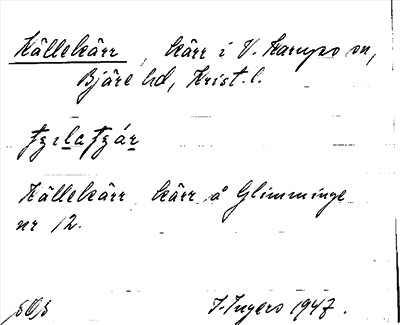 Källekärr, kärr i V. Karups sn,
Bjäre hd, Krist. l.
Källekärr kärr å Glimminge
nr 12.
I. Ingers 1947.